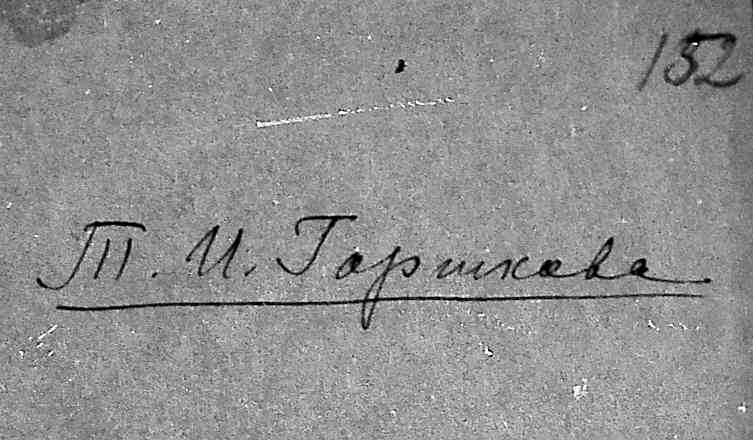 152
Т. И. Горшкова